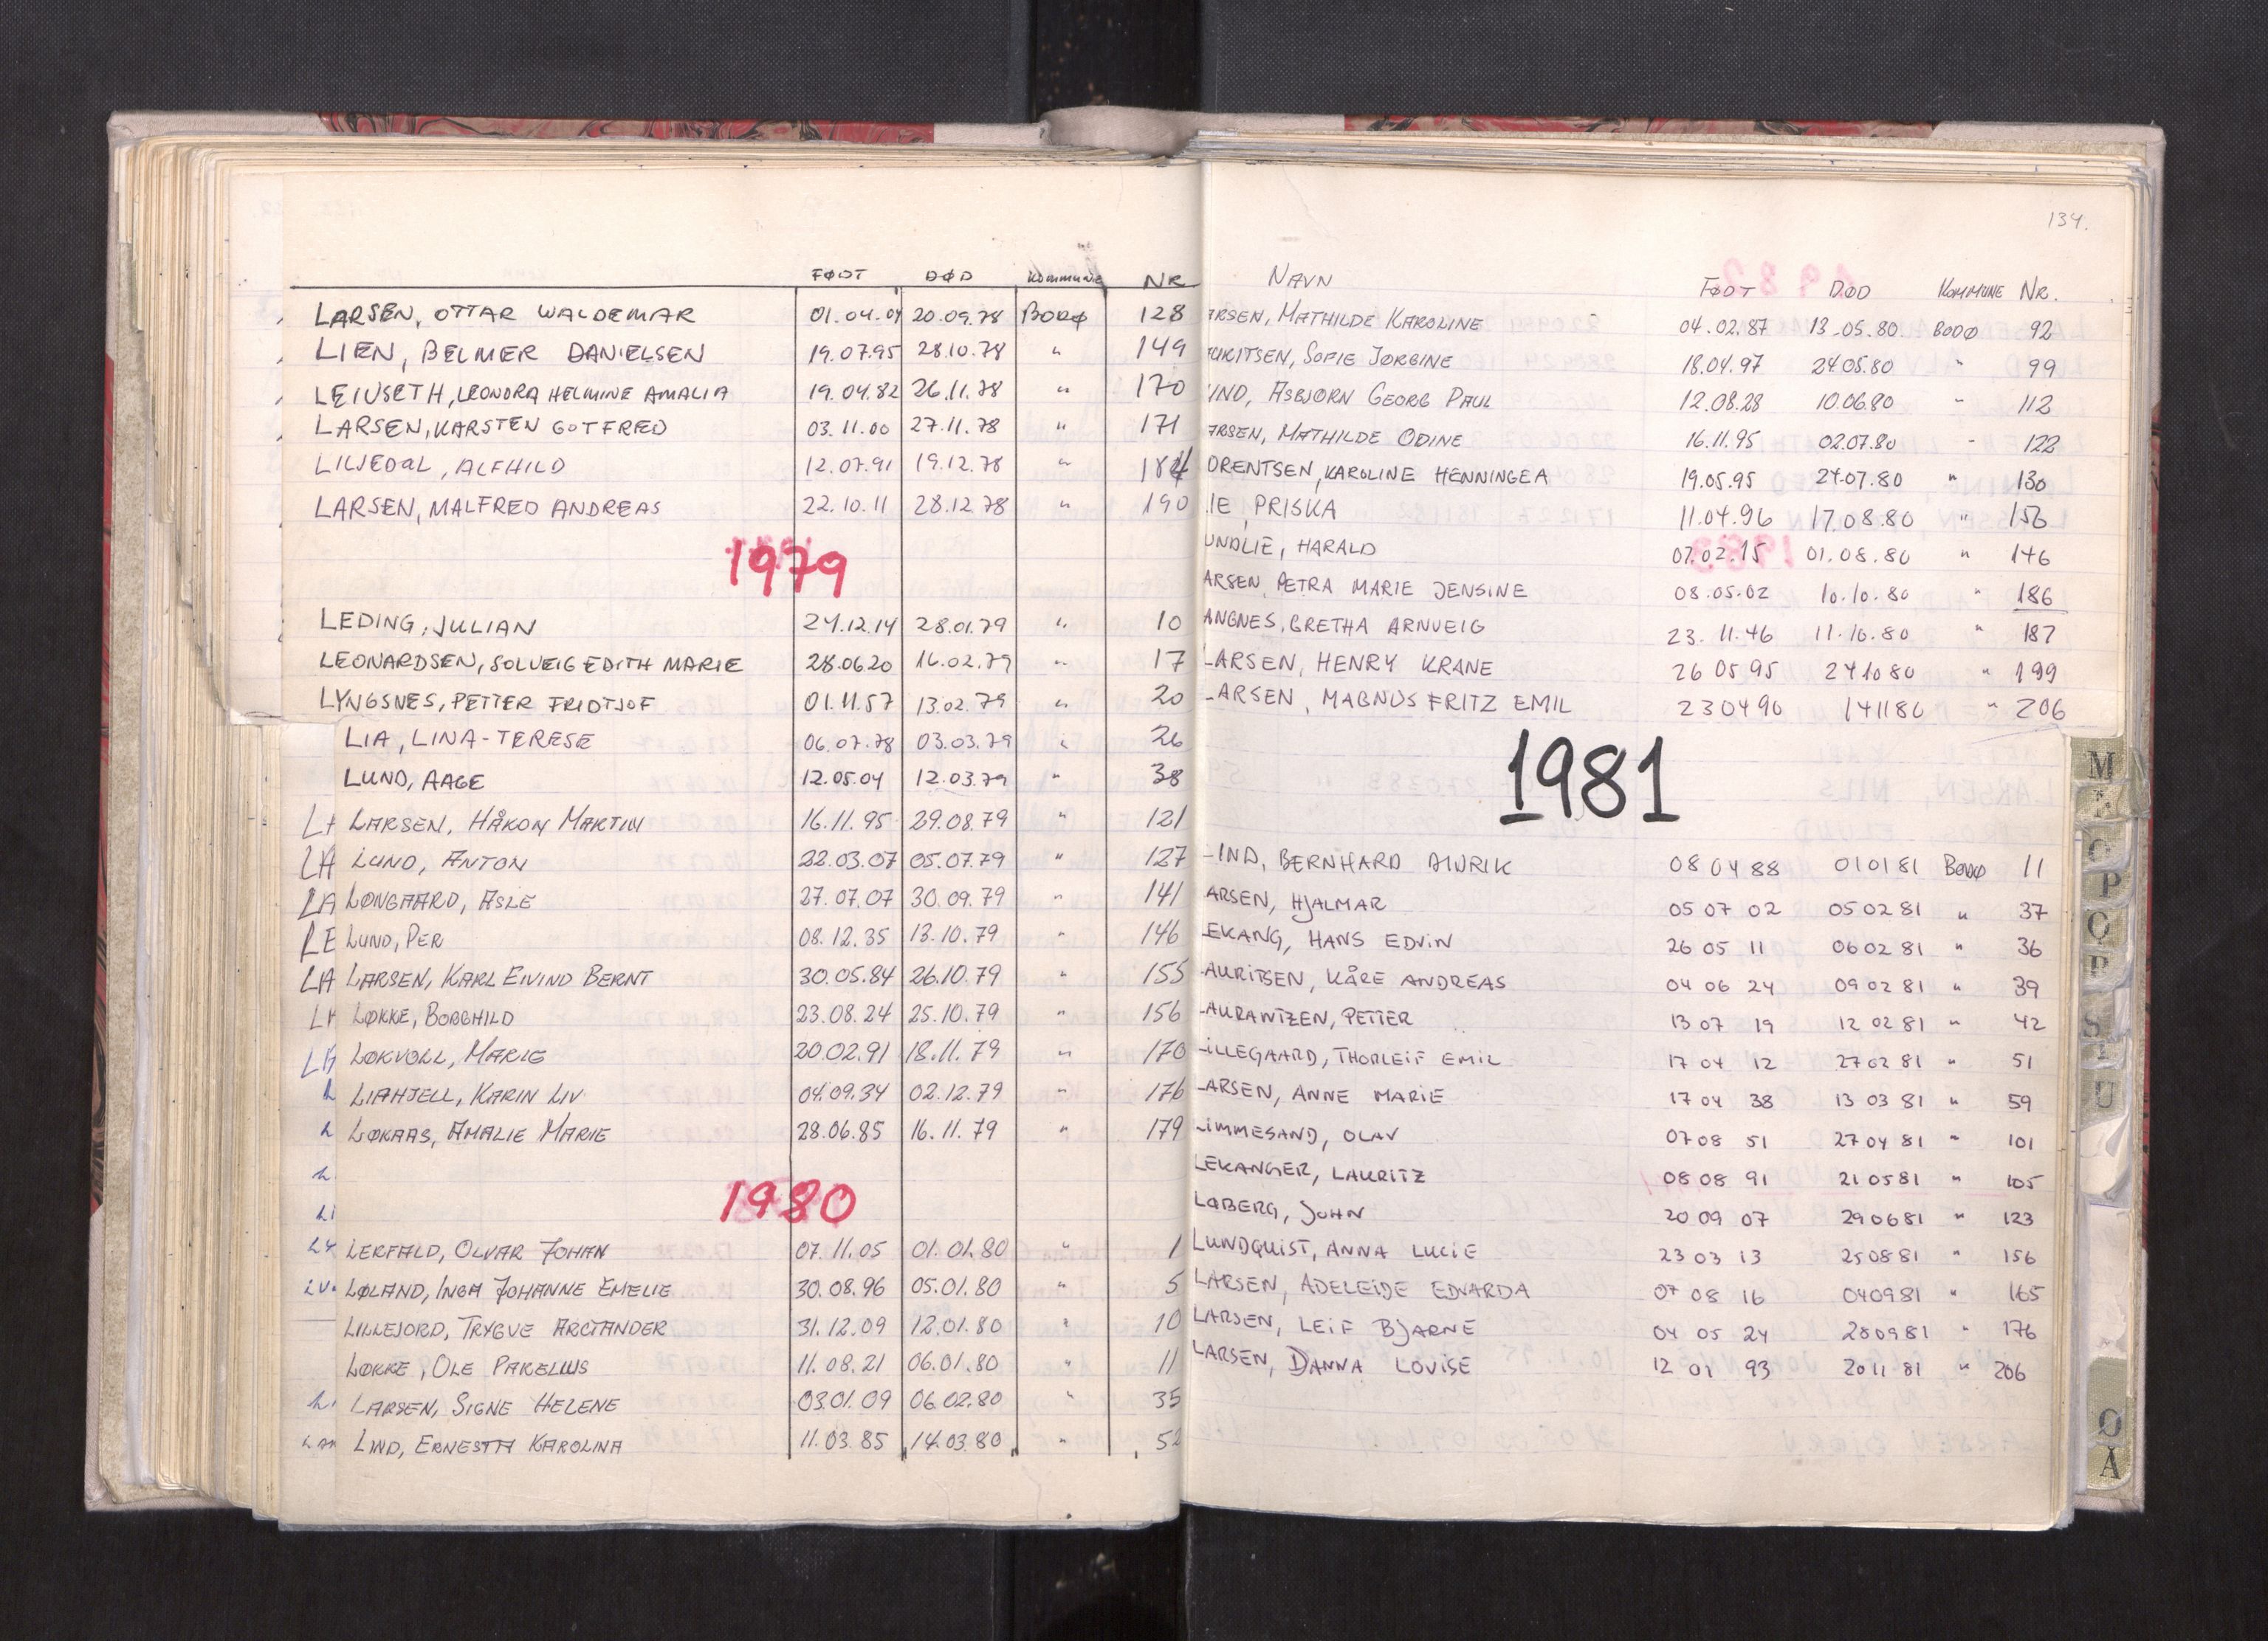 FØDT DØD Kommune NR
LARSEN, OTTAR WALDEMAR 01.04.04 20.09.78 BODØ 128
LIEN, BELMER DANIELSEN 19.07.95 28.10.78 " 149
LEIUSETH, LEONDRA HELMINE AMALIA 19.04.82 26.11.78 " 170
LARSEN, KARSTEN GOTFRED 03.11.00 27.11.78 " 171
LILJEDAL, ALFHILD 12.07.91 19.12.78 " 184
LARSEN, MALFRED ANDREAS 22.10.11 28.12.78 " 190
1979
LEDING, JULIAN 24.12.14 28.01.79 " 10
LEONARDSEN, SOLVEIG EDITH MARIE 28.06.20 16.02.79 " 17
LYNGSNES, PETTER FRIDTJOF 01.11.57 13.02.79 " 20
LIA, LINA-TERESE 06.07.78 03.03.79 " 26
LUND, AAGE 12.05.04 12.03.79 " 38
LARSEN, HÅKON MARTIN 16.11.95 29.08.79 " 121
LA LUND, ANTON 22.03.07 05.07.79 " 127
LA LØNGAARD, ASLE 27.07.07 30.09.79 " 141
LE LUND, PER 08.12.35 13.10.79 " 146
LA LARSEN, KARL EIVIND BERNT 30.05.84 26.10.79 " 155
LØKKE, BORGHILD 23.08.24 25.10.79 " 156
LA LØKVOLL, MARIE 20.02.91 18.11.79 " 170
L LIAHJELL, KARIN LIV 04.09.34 02.12.79 " 176
L LØKAAS, AMALIE MARIE 28.06.85 16.11.79 " 179
1980
LERFALD, OLVAR JOHAN 07.11.05 01.01.80 " 1
LØLAND, INGA JOHANNE EMELIE 30.08.96 05.01.80 " 5
LILLEJORD, TRYGVE ARCTANDER 31.12.09 12.01.80 " 10
LØKKE, OLE PARELIUS 11.08.21 06.01.80 " 11
LARSEN, SIGNE HELENE 03.01.09 06.02.80 " 35
LIND, ERNESTA KAROLINA 11.03.85 14.03.80 " 52
134.
NAVN FØDT DØD KOMMUNE NR.
ARSEN, MATHILDE KAROLINE 04.02.87 13.05.80 BODØ 92
URITSEN, SOFIE JØRGINE 18.04.97 24.05.80 " 99
UND, ASBJØRN GEORG PAUL 12.08.28 10.06.80 " 112
ARSEN, MATHILDE ODINE 16.11.95 02.07.80 " 122
ORENTSEN, KAROLINE HENNINGEA 19.05.95 24.07.80 " 130
IE, PRISKA 11.04.96 17.08.80 " 156
UNDLIE, HARALD 07.02.15 01.08.80 " 146
ARSEN, PETRA MARIE JENSINE 08.05.02 10.10.80 " 186
ANGNES, GRETHA ARNVEIG 23.11.46 11.10.80 " 187
LARSEN, HENRY KRANE 26 05 95 24 10 80 " 199
LARSEN, MAGNUS FRITZ EMIL 23 04 90 14 11 80 " 206
1981
LIND, BERNHARD 08 04 88 01 01 81 BODØ 11
ARSEN, HJALMAR 05 07 02 05 02 81 " 37
LEKANG, HANS EDVIN 26 05 11 06 02 81 " 36
LAURITSEN, KÅRE ANDREAS 04 06 24 09 02 81 " 39
LAURANTZEN, PETTER 13 07 19 12 02 81 " 42
LILLEGAARD, THORLEIF EMIL 17 04 12 27 02 81 " 51
LARSEN, ANNE MARIE 17 04 38 13 03 81 " 59
LIMMESAND, OLAV 07 08 51 27 04 81 " 101
LEKANGER, LAURITZ 08 08 91 21 05 81 " 105
LØBERG, JOHN 20 09 07 29 06 81 " 123
LUNDQUIST, ANNA LUCIE 23 03 13 25 08 81 " 156
LARSEN, ADELEIDE EDVARDA 07 08 16 04 09 81 " 165
LARSEN, LEIF BJARNE 04 05 24 28 09 81 " 176
LARSEN, DANNA LOVISE 12 01 93 20 11 81 " 206
M
P
S
U
Ø
Å